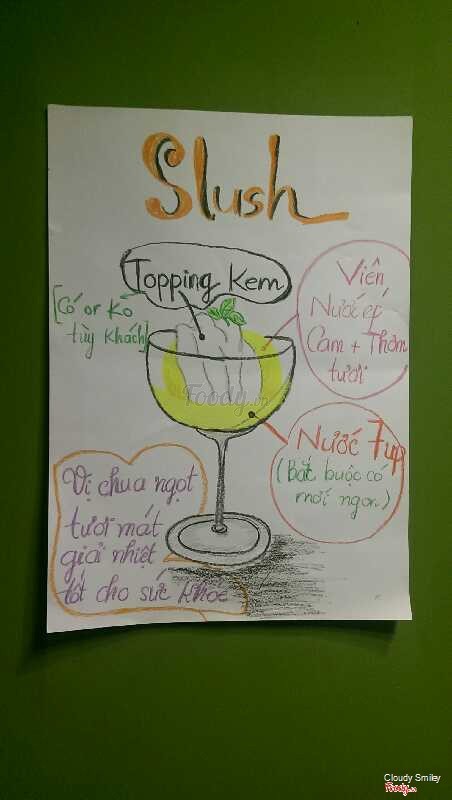 Slush
Topping Kem
[Có or Kó
tùy khách]
Viên
Nước ép
Cam + Thơm
tươi
Foody.vn
Nước 7up
(Bắt buộc có
mới ngon.)
Vị chua ngọt
tươi mát
giải nhiệt
tốt cho sức khỏe
Cloudy Smiley
Foody.vn